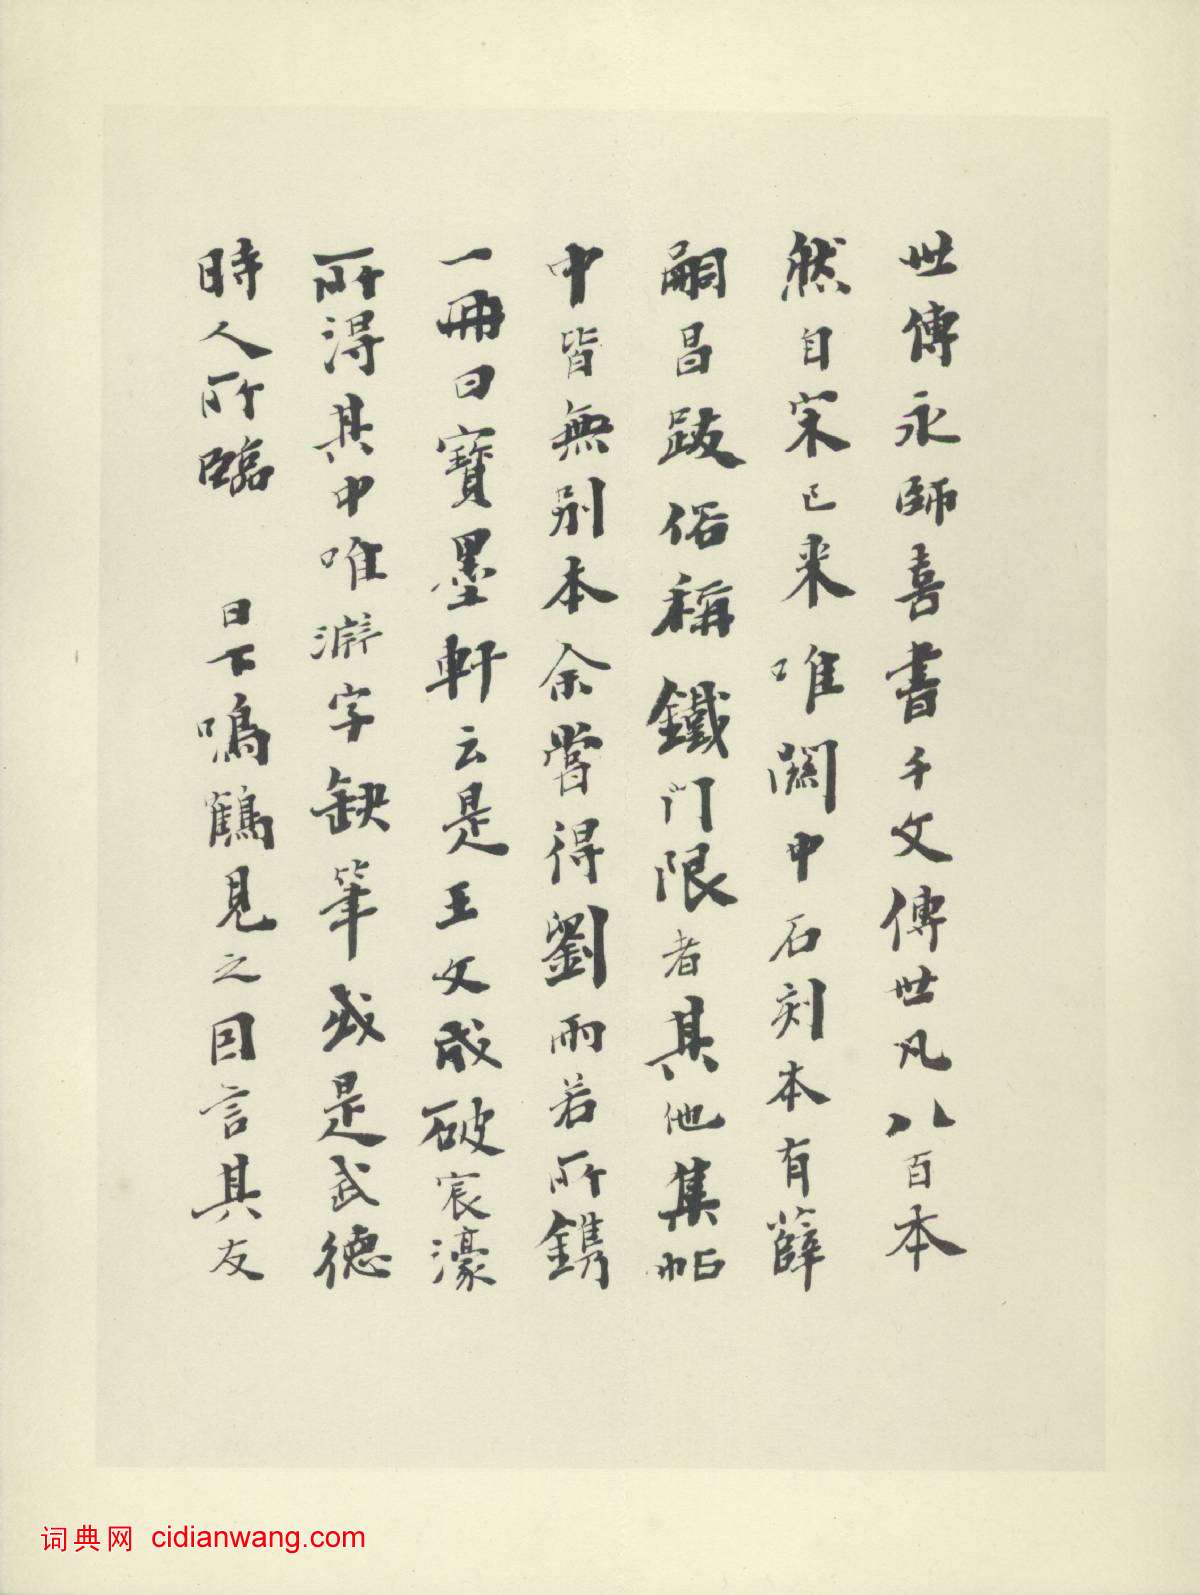 世傳永師喜書千文傳世凡八百本
然自宋已来唯關中石刻本有薛
嗣昌跋俗稱鐵門限者其他集帖
中皆無別本余嘗得劉雨若所鐫
一冊曰寶墨軒云是王文成破宸濠
所得其中唯淵字缺筆或是武德
時人所臨 日下鳴鶴見之因言其友
词典网 cidianwang.com